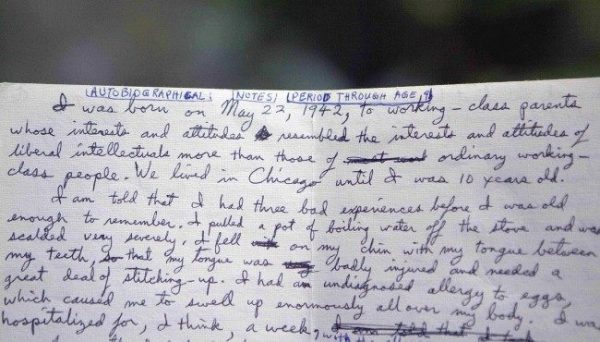 AUTOBIOGRAPHICAL NOTES PERIOD THROUGH AGE
I was born on May 22, 1942, to working-class parents
whose interests and attitudes resembled the interests and attitudes of
liberal intellectuals more than those of ordinary working-
class people. We lived in Chicago until I was 10 years old.
I am told that I had three bad experiences before I was old
enough to remember. I pulled a pot of boiling water off the stove and was
scalded very severely, I fell on my chin with my tongue between
my teeth, so that my tongue was badly injured and needed a
great deal of stitching-up. I had an undiagnosed allergy to eggs,
which caused me to swell up enormously all over my body. I was
hospitalized for, I think, a week,